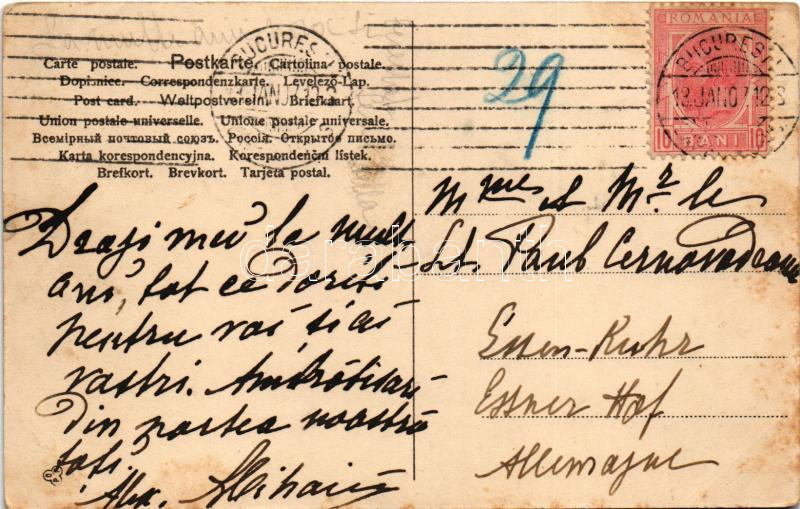 La multi ani
BUCUREȘTI
13 JAN 07 12 S
29
ROMANIA
10 BANI 10
Carte postale. Postkarte. Cartolina postale.
Dopisnice. Correspondenzkarte. Levelező-Lap.
Post card. Weltpostverein. Briefkaart
Union postale universelle. Unione postale universale.
Всемірный почтовый союзъ. Россія. Открытое письмо.
Karta korespondencyjna. Korespondenční lístek.
Brefkort. Brevkort. Tarjeta postal.
Dragi mei la mulți
ani, tot ce doriți
pentru voi și ai
vastri.
din partea noastră
toți.
Alex. Mihaiu
Mme & Mr. le
Lt. Paul Cernovodeanu
Essen-Ruhr
Essner Hof
Allemagne
darabanth